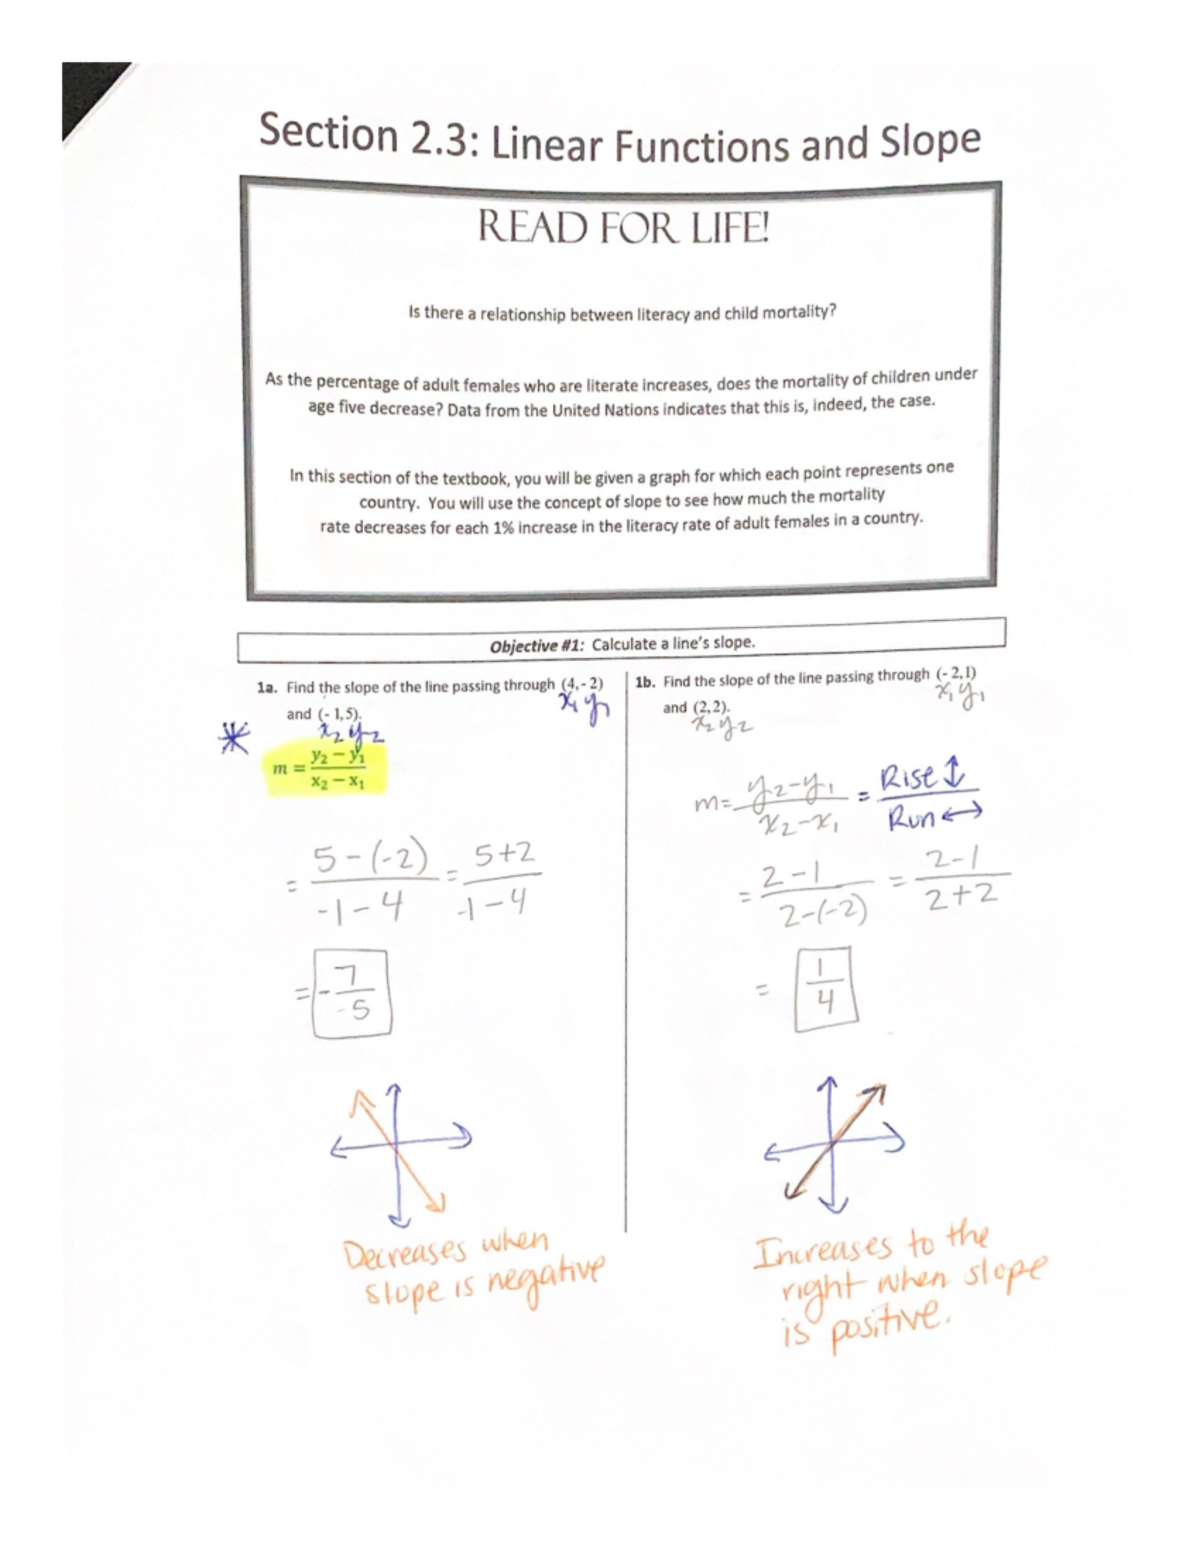 Section 2.3: Linear Functions and Slope
READ FOR LIFE!
Is there a relationship between literacy and child mortality?
As the percentage of adult females who are literate increases, does the mortality of children under
age five decrease? Data from the United Nations indicates that this is, indeed, the case.
In this section of the textbook, you will be given a graph for which each point represents one
country. You will use the concept of slope to see how much the mortality
rate decreases for each 1% increase in the literacy rate of adult females in a country.
Objective #1: Calculate a line's slope.
1a. Find the slope of the line passing through (4,-2)
x₁ y₁
and (-1,5).
x₂ y₂
m = (y₂ − y₁)/(x₂ − x₁)
= (5-(-2))/(-1-4) = (5+2)/(-1-4)
= -7/-5
Decreases when
slope is negative
1b. Find the slope of the line passing through (-2,1)
x₁ y₁
and (2,2).
x₂ y₂
m = (y₂-y₁)/(x₂-x₁) = Rise ↕/Run ↔
= (2-1)/(2-(-2)) = (2-1)/(2+2)
= 1/4
Increases to the
right when slope
is positive.